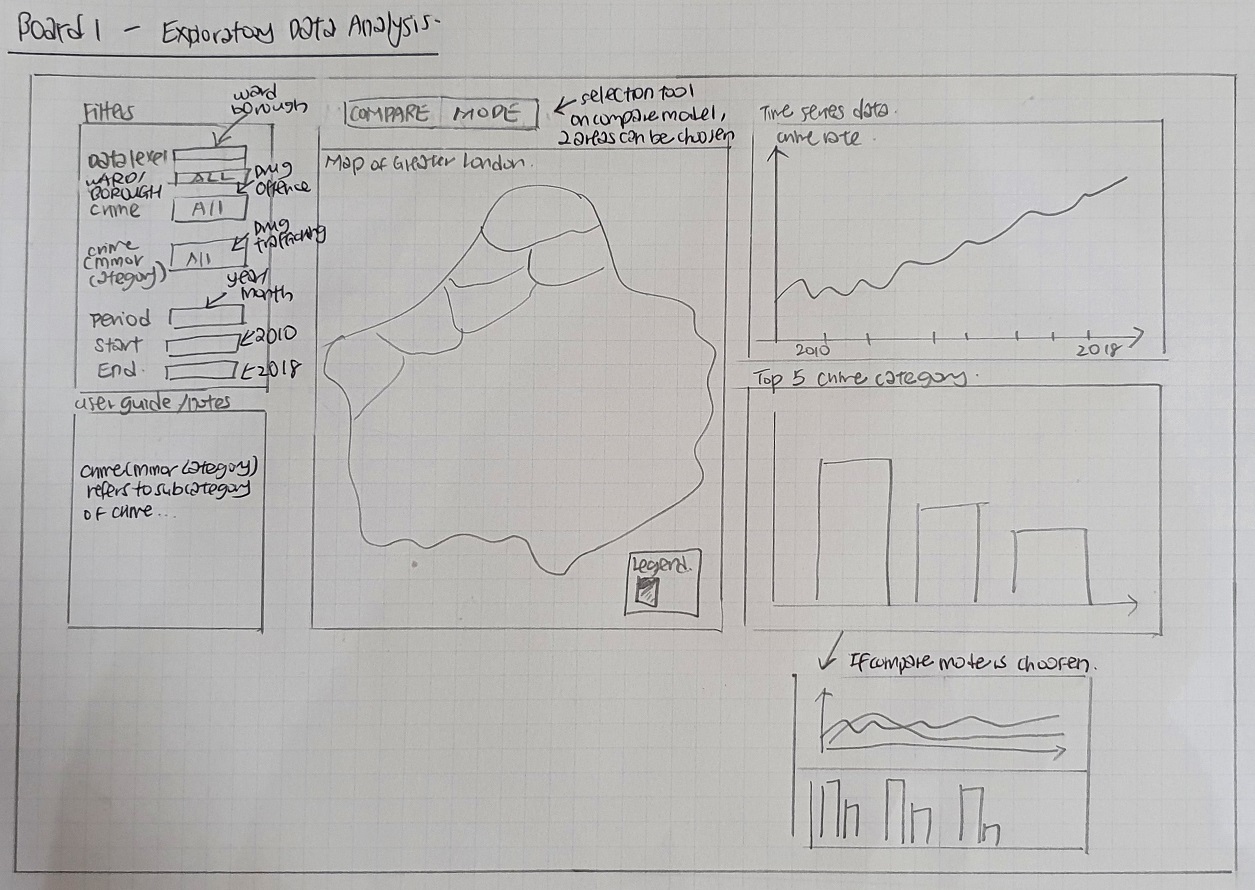 Board 1 - Exploratory Data Analysis.
Filters
ward
borough
Data level
WARD/
BOROUGH
ALL
Drug
Offence
crime
All
Drug
trafficking
crime
(minor
category)
All
year/
month
Period
Start
2010
End.
2018
user guide /notes
crime(minor category)
refers to subcategory
of crime...
COMPARE MODE
selection tool
on compare model,
2 areas can be choosen
Map of Greater London.
Legend.
Time series data.
crime rate.
2010
2018
Top 5 crime category.
If compare mode is choosen.